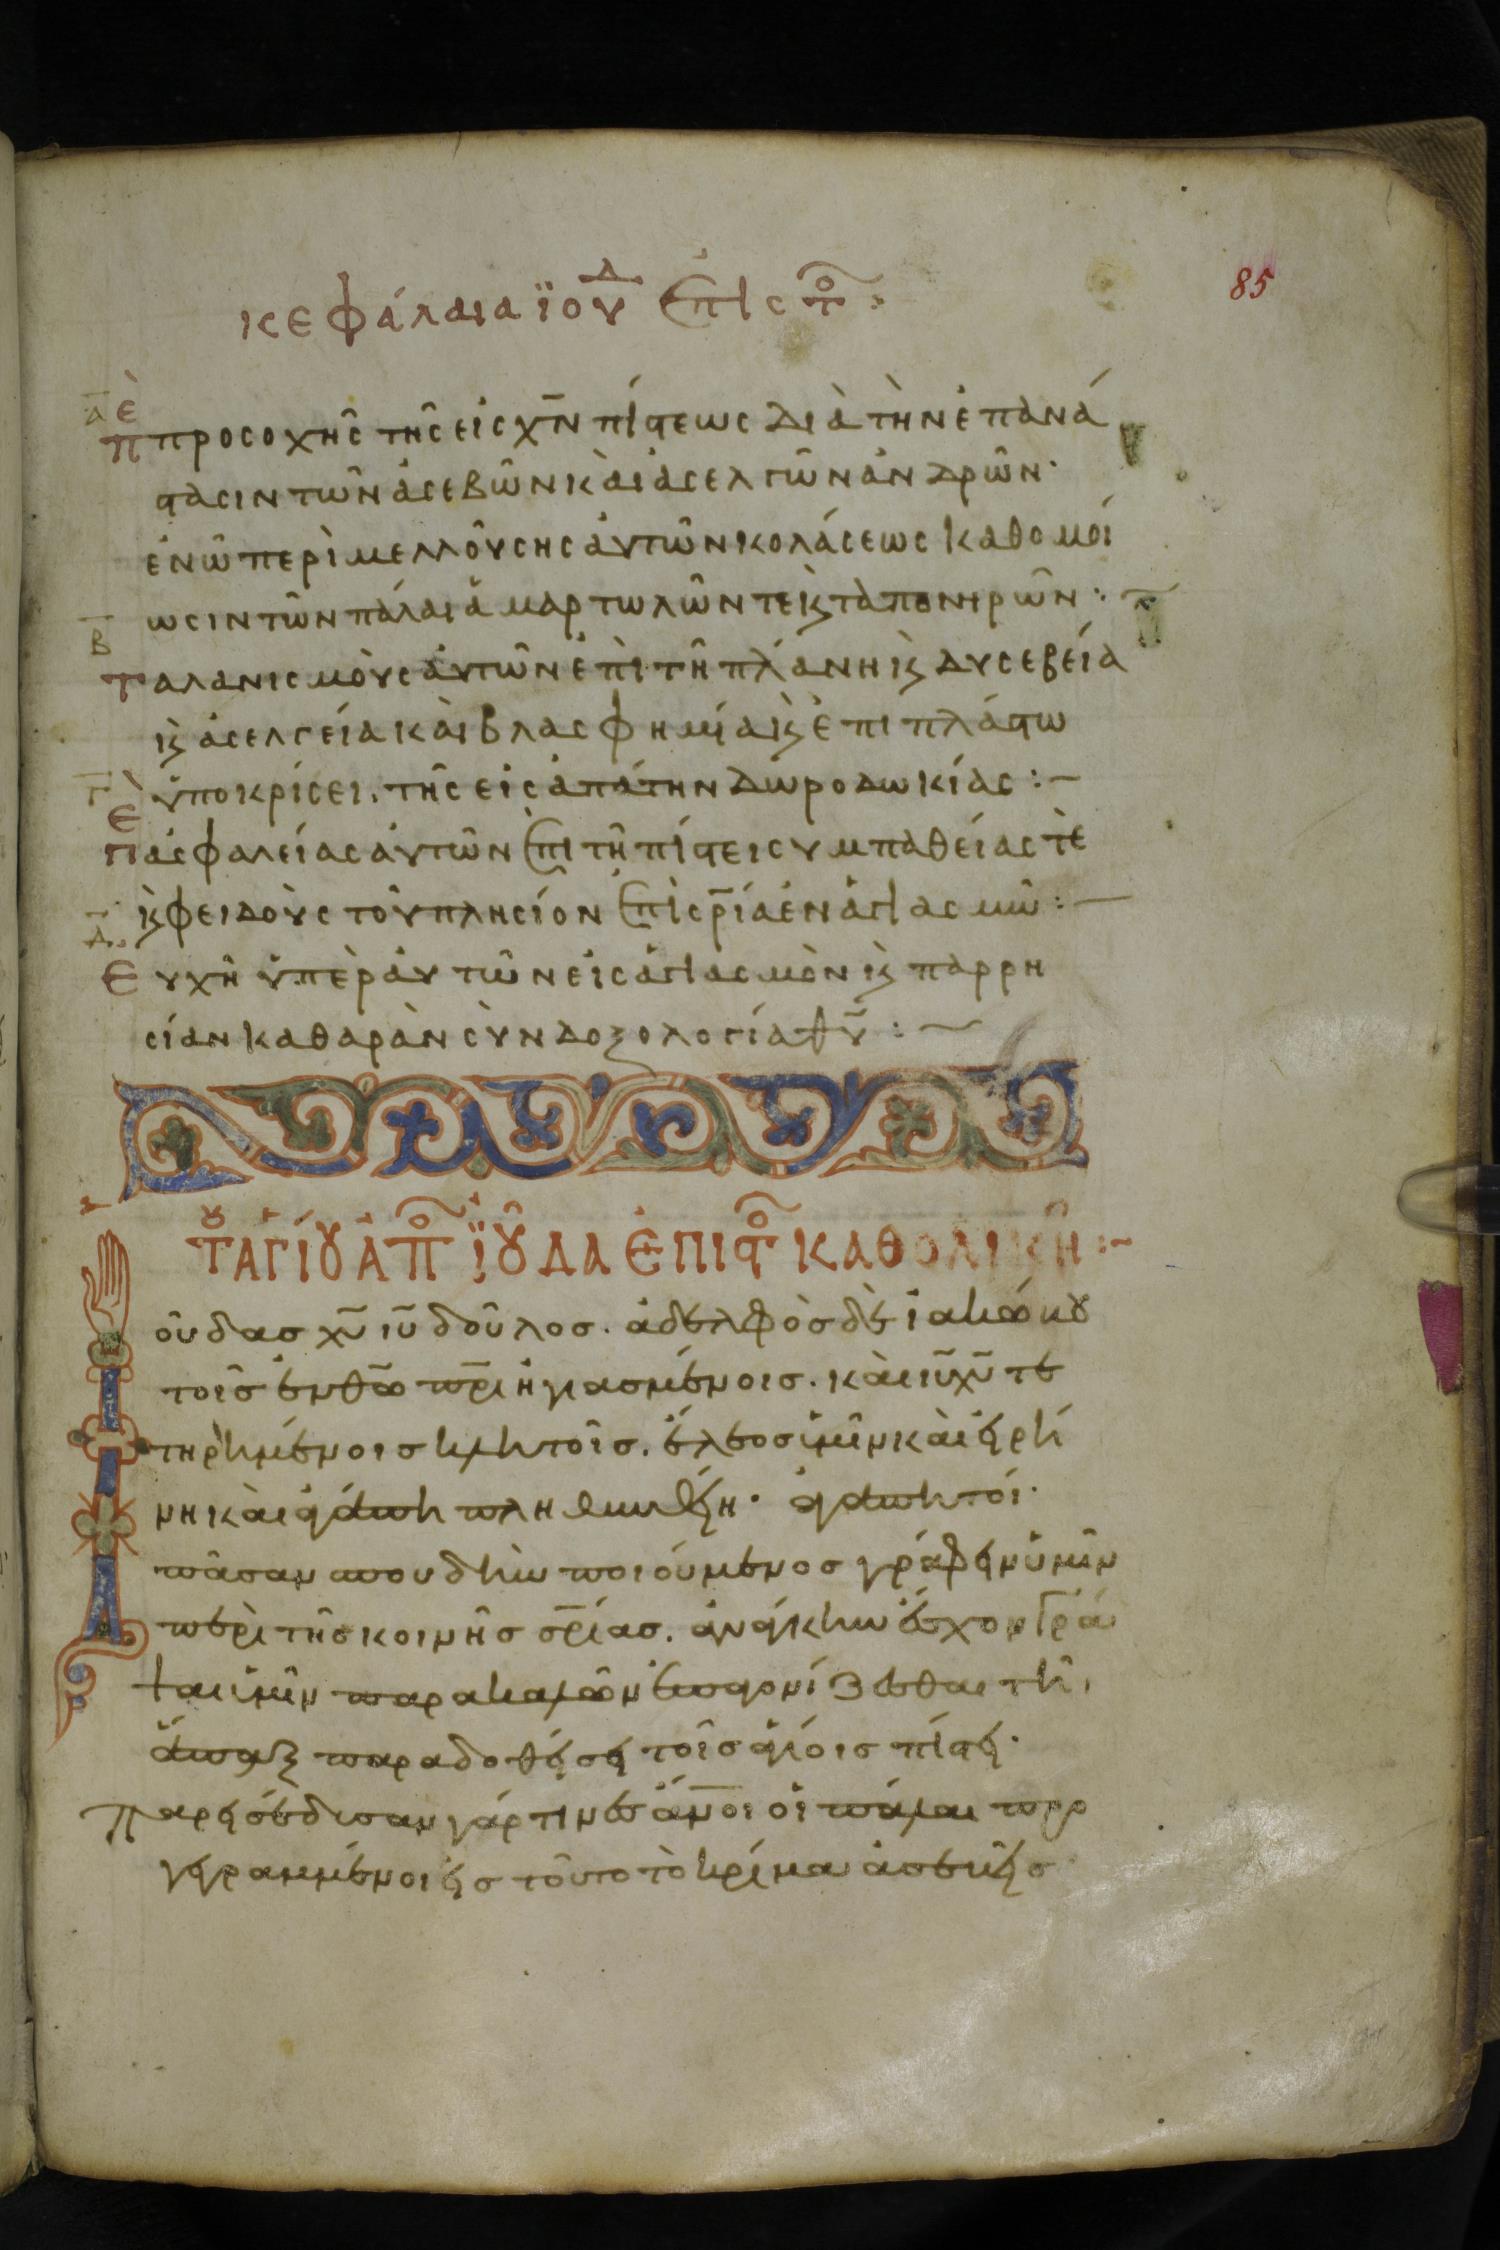 85
κεφάλαια ϊού Δ ἐπιστο:
Α ἐπ προσοχῆς τῆς εἰς χ̅ν πίστεως διὰ τὴν ἐπανά
στασιν τῶν ἀσεβῶν κὰι ἀσελγῶν ἀνδρῶν·
ἐν ὧ περὶ μελλούσης ἀυτῶν κολάσεως καθομοί
ωσιν τῶν πάλαι ἁμαρτωλῶν τε κ̀ τὰ πονηρῶν :
Β ταλανισμὸυς ἀυτῶν ἐπὶ τῆ πλάνη κ̀ δυσεβεία
κ̀ ἀσελγεία κὰι βλασφημία κ̀ ἐπιπλάστω
ὑποκρίσει. τῆς εἰς ἀπάτην δωροδωκίας :–
Γ ἐπ ἀσφαλείας ἀυτῶν ἐπι τῆ πίστει συμπαθείας τὲ
κ̀ φειδοὺς τοῦ πλησίον ἐπὶ σρ̅ία ἐν ἁγιασμῶ :–
Δ Ευχὴ ὑπὲρ ἀυτῶν εἰς ἁγιασμὸν κ̀ παρρη
σίαν καθαρὰν σὺν δοξολογία θ̅υ : ~
τοῦ ἁγίου ἀπο ϊούδα ἐπιστο καθολική :–
Ιούδασ χ̅υ ι̅υ δοῦλοσ. ἀδελφὸσ δὲ ἰακώβου
τοῖσ ἐν θ̅ω π̅ρι ἡγιασμένοισ. κὰι ι̅υ χ̅υ τε
τηρημένοισ κλητοῖσ. ἔλεοσ ὑμῖν κὰι εἰρή
νη κὰι ἀγάπη πληθυνθείη· ἀγαπητοί·
πᾶσαν σπουδὴν ποιούμενοσ γράφειν ὑμῖν
περὶ τῆσ κοινῆσ σρ̅ίασ. ἀνάγκην ἔσχον γρά
ψαι ὑμῖν παρακαλῶν ἐπαγονίζεσθαι τῆ,
ἅπαξ παραδοθείση τοῖσ ἁγίοισ πίστει·
Παρεισέδυσαν γάρ τινεσ ἄ̅νοι οἱ πάλαι προ
γεγραμμένοι εἰσ τοῦτο τὸ κρίμα ἀσεβεῖσ